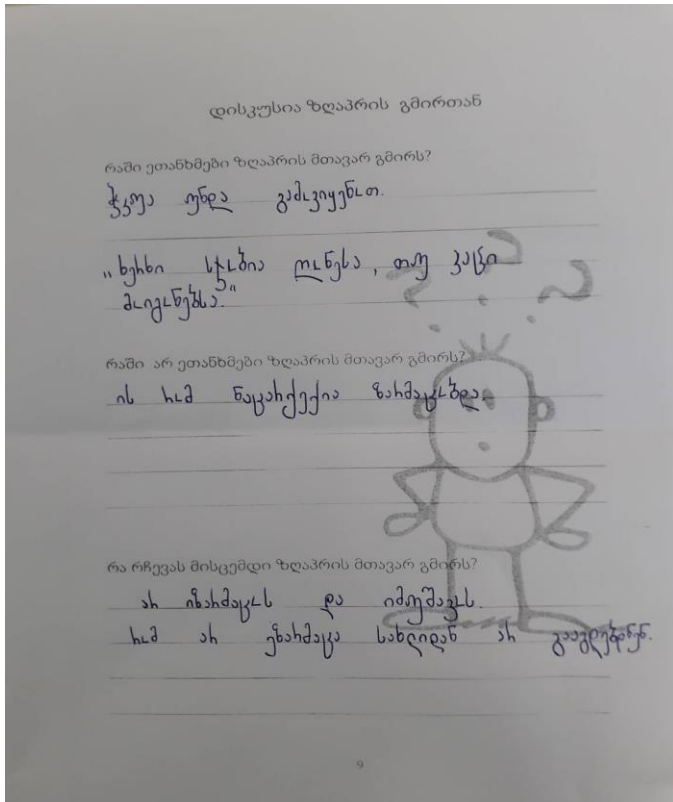 დისკუსია ზღაპრის გმირთან
რაში ეთანხმები ზღაპრის მთავარ გმირს?
ჭკუა უნდა გამოვიყენოთ.
„ხერხი სჯობია ღონესა, თუ კაცი
მოიგონებსა.“
რაში არ ეთანხმები ზღაპრის მთავარ გმირს?
ის რომ ნაცარქექია ზარმაცობდა.
რა რჩევას მისცემდი ზღაპრის მთავარ გმირს?
არ იზარმაცოს და იმუშავოს.
რომ არ ეზარმაცა სახლიდან არ გააგდებდნენ.
9